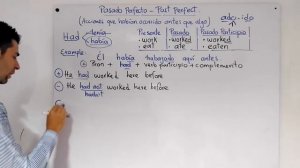 Pasado Perfecto - Past Perfect
(Acciones que habían ocurrido antes que algo)
ado - ido
Had tenía
había
Presente Pasado Pasado Participio
• work • worked • worked
• eat • ate • eaten
Example:
Él había trabajado aquí antes
+ Pron + had + verb participio + complemento
+ He had worked here before
- He had not worked here before
hadn't